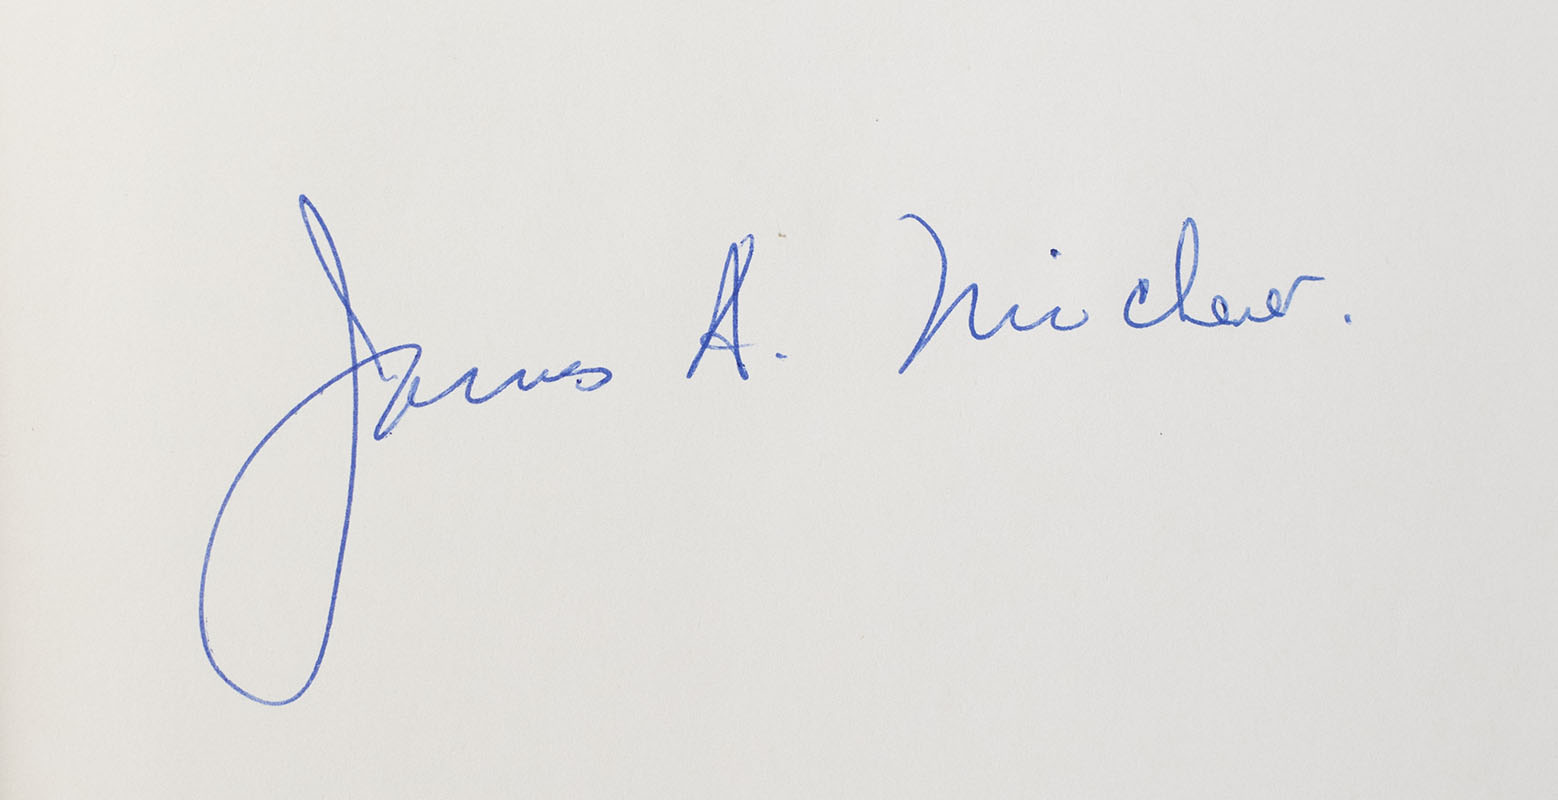 James A. Michener.